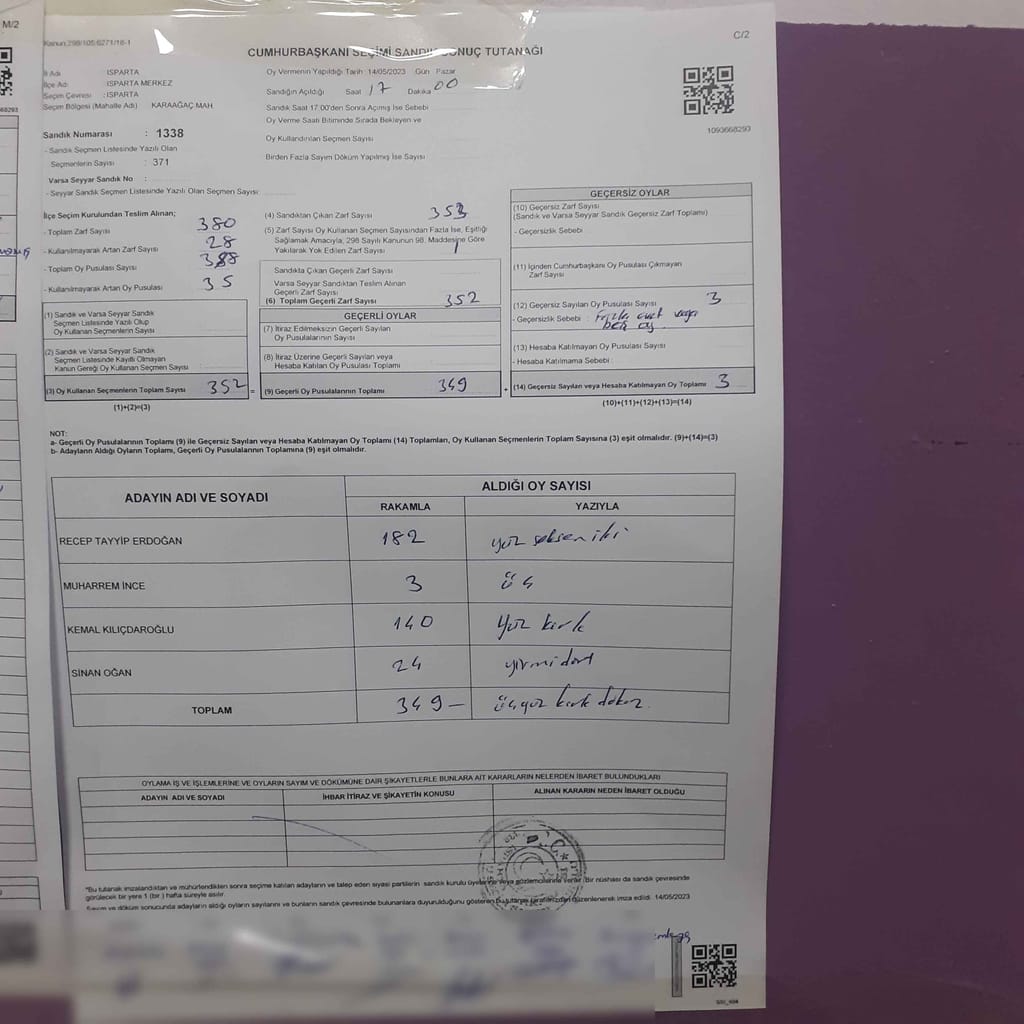 M/2
C/2
Kanun:298/105;6271/18-1
CUMHURBAŞKANI SEÇİMİ SANDIK SONUÇ TUTANAĞI
İl Adı : ISPARTA
İlçe Adı : ISPARTA MERKEZ
Seçim Çevresi : ISPARTA
Seçim Bölgesi (Mahalle Adı) KARAAĞAÇ MAH
Sandık Numarası : 1338
- Sandık Seçmen Listesinde Yazılı Olan
Seçmenlerin Sayısı : 371
Varsa Seyyar Sandık No :
- Seyyar Sandık Seçmen Listesinde Yazılı Olan Seçmen Sayısı:
Oy Vermenin Yapıldığı Tarih :14/05/2023 Gün : Pazar
Sandığın Açıldığı Saat 17 Dakika 00
Sandık Saat 17:00'den Sonra Açılmış İse Sebebi
Oy Verme Saati Bitiminde Sırada Bekleyen ve
Oy Kullandırılan Seçmen Sayısı
Birden Fazla Sayım Döküm Yapılmış İse Sayısı
1093668293
İlçe Seçim Kurulundan Teslim Alınan;
- Toplam Zarf Sayısı 380
- Kullanılmayarak Artan Zarf Sayısı 28
- Toplam Oy Pusulası Sayısı 388
- Kullanılmayarak Artan Oy Pusulası 35
(1) Sandık ve Varsa Seyyar Sandık
Seçmen Listesinde Yazılı Olup
Oy Kullanan Seçmenlerin Sayısı
(2) Sandık ve Varsa Seyyar Sandık
Seçmen Listesinde Kayıtlı Olmayan
Kanun Gereği Oy Kullanan Seçmen Sayısı
(3) Oy Kullanan Seçmenlerin Toplam Sayısı 352 =
(1)+(2)=(3)
(4) Sandıktan Çıkan Zarf Sayısı 353
(5) Zarf Sayısı Oy Kullanan Seçmen Sayısından Fazla İse, Eşitliği
Sağlamak Amacıyla, 298 Sayılı Kanunun 98. Maddesine Göre
Yakılarak Yok Edilen Zarf Sayısı 1
Sandıkta Çıkan Geçerli Zarf Sayısı
Varsa Seyyar Sandıktan Teslim Alınan
Geçerli Zarf Sayısı
(6) Toplam Geçerli Zarf Sayısı 352
GEÇERLİ OYLAR
(7) İtiraz Edilmeksizin Geçerli Sayılan
Oy Pusulalarının Sayısı
(8) İtiraz Üzerine Geçerli Sayılan veya
Hesaba Katılan Oy Pusulası Toplamı
(9) Geçerli Oy Pusulalarının Toplamı 349 +
GEÇERSİZ OYLAR
(10) Geçersiz Zarf Sayısı
(Sandık ve Varsa Seyyar Sandık Geçersiz Zarf Toplamı)
- Geçersizlik Sebebi
(11) İçinden Cumhurbaşkanı Oy Pusulası Çıkmayan
Zarf Sayısı
(12) Geçersiz Sayılan Oy Pusulası Sayısı 3
- Geçersizlik Sebebi : Fazla evet veya
boş oy
(13) Hesaba Katılmayan Oy Pusulası Sayısı
- Hesaba Katılmama Sebebi :
(14) Geçersiz Sayılan veya Hesaba Katılmayan Oy Toplamı 3
(10)+(11)+(12)+(13)=(14)
NOT:
a- Geçerli Oy Pusulalarının Toplamı (9) ile Geçersiz Sayılan veya Hesaba Katılmayan Oy Toplamı (14) Toplamları, Oy Kullanan Seçmenlerin Toplam Sayısına (3) eşit olmalıdır. (9)+(14)=(3)
b- Adayların Aldığı Oyların Toplamı, Geçerli Oy Pusulalarının Toplamına (9) eşit olmalıdır.
ADAYIN ADI VE SOYADI
ALDIĞI OY SAYISI
RAKAMLA YAZIYLA
RECEP TAYYİP ERDOĞAN 182 yüz seksen iki
MUHARREM İNCE 3 üç
KEMAL KILIÇDAROĞLU 140 Yüz kırk
SİNAN OĞAN 24 yirmi dört
TOPLAM 349 - üçyüz kırk dokuz
OYLAMA İŞ VE İŞLEMLERİNE VE OYLARIN SAYIM VE DÖKÜMÜNE DAİR ŞİKAYETLERLE BUNLARA AİT KARARLARIN NELERDEN İBARET BULUNDUKLARI
ADAYIN ADI VE SOYADI İHBAR İTİRAZ VE ŞİKAYETİN KONUSU ALINAN KARARIN NEDEN İBARET OLDUĞU
*Bu tutanak imzalandıktan ve mühürlendikten sonra seçime katılan adayların ve talep eden siyasi partilerin sandık kurulu üyelerine veya gözlemcilerine verilir. Bir nüshası da sandık çevresinde
görülecek bir yere 1 (bir) hafta süreyle asılır.
Sayım ve döküm sonucunda adayların aldığı oyların sayılarını ve bunların sandık çevresinde bulunanlara duyurulduğunu gösteren bu tutanak tarafımızdan düzenlenerek imza edildi. 14/05/2023